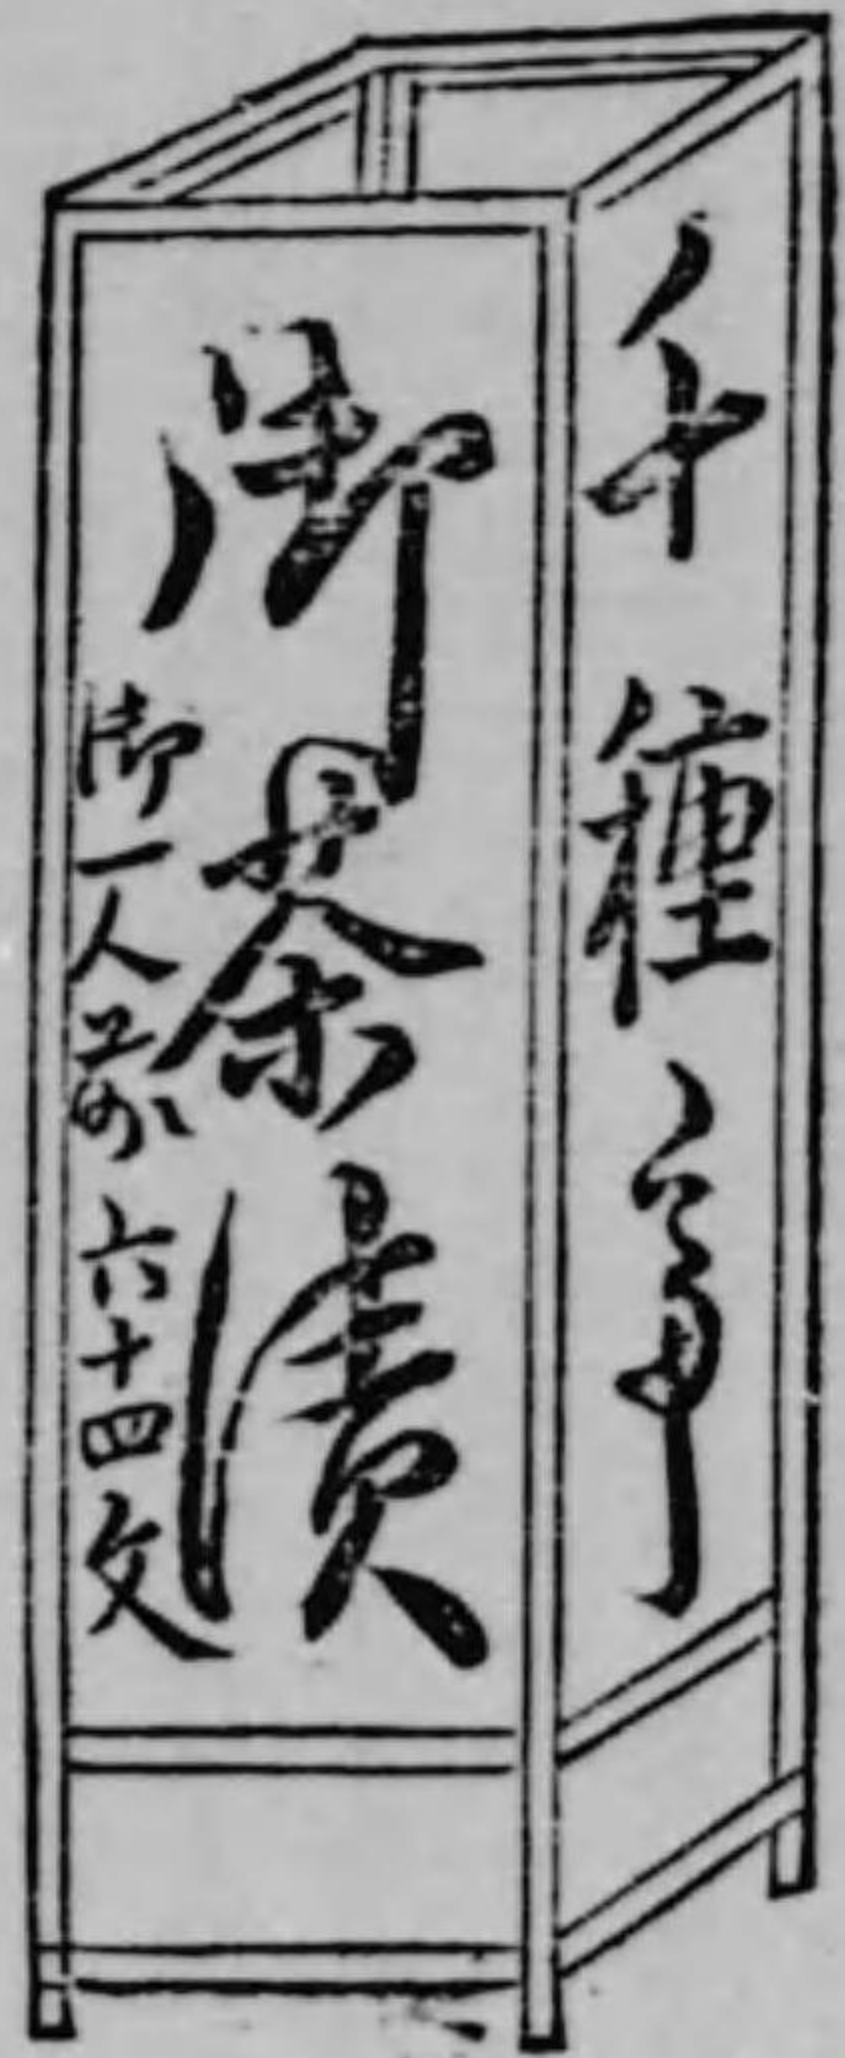 千種亭
御茶漬
御一人前
六十四文